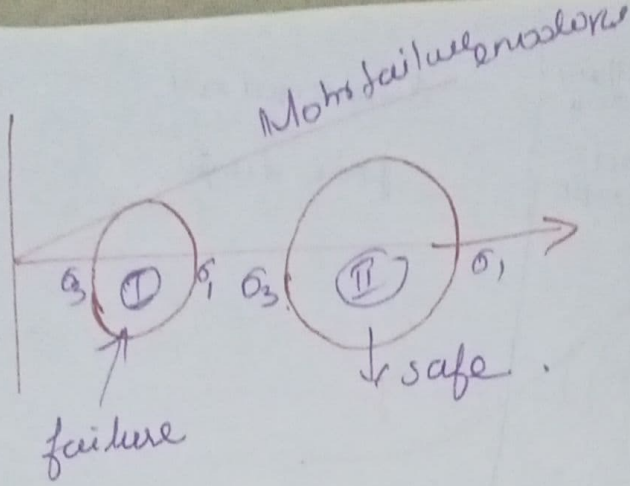 Mohr failure envelope
σ3 I σ1 σ3 II σ1
safe.
failure